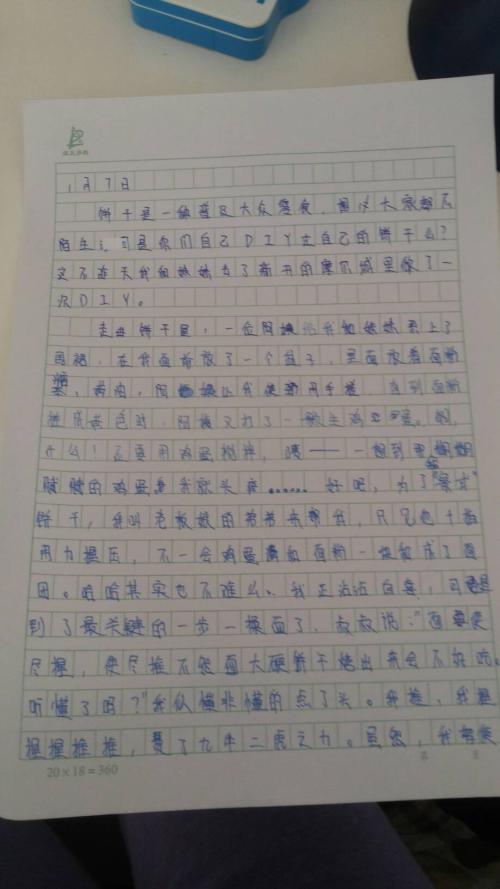 1月7日
饼干是一种普及大众零食,想必大家都不
陌生,可是你们自己DIY过自己的饼干么?
这不昨天我和妹妹去了新开的摩尔城里做了一
次DIY。
走进饼干屋,一位阿姨给我和妹妹系上了
围裙,在我面前放了一个盆子,里面放着面粉
糖、黄油,阿姨让我使用手搓,直到面粉
进成黄色时,阿姨又打了一颗生鸡蛋。啊,
什么!还要用鸡蛋搅拌,咦——一想到黏糊糊
腻腻的鸡蛋我就头疼……好吧,为了尝
饼干,我叫老板娘的爷爷来帮我,只见他十指
用力揉压,不一会鸡蛋黄和面粉一块做成了面
团。哈哈其实也不难么。我正沾沾自喜,可是
到了最关键的一步—揉面了,叔叔说:"面要使
尽揉,使尽推不然面大硬饼干烤出来会不好吃。
听懂了吗?"我似懂非懂的点了头。我推,我揉
揉揉推推,费了九牛二虎之力。虽然,我
20×18=360
第 页